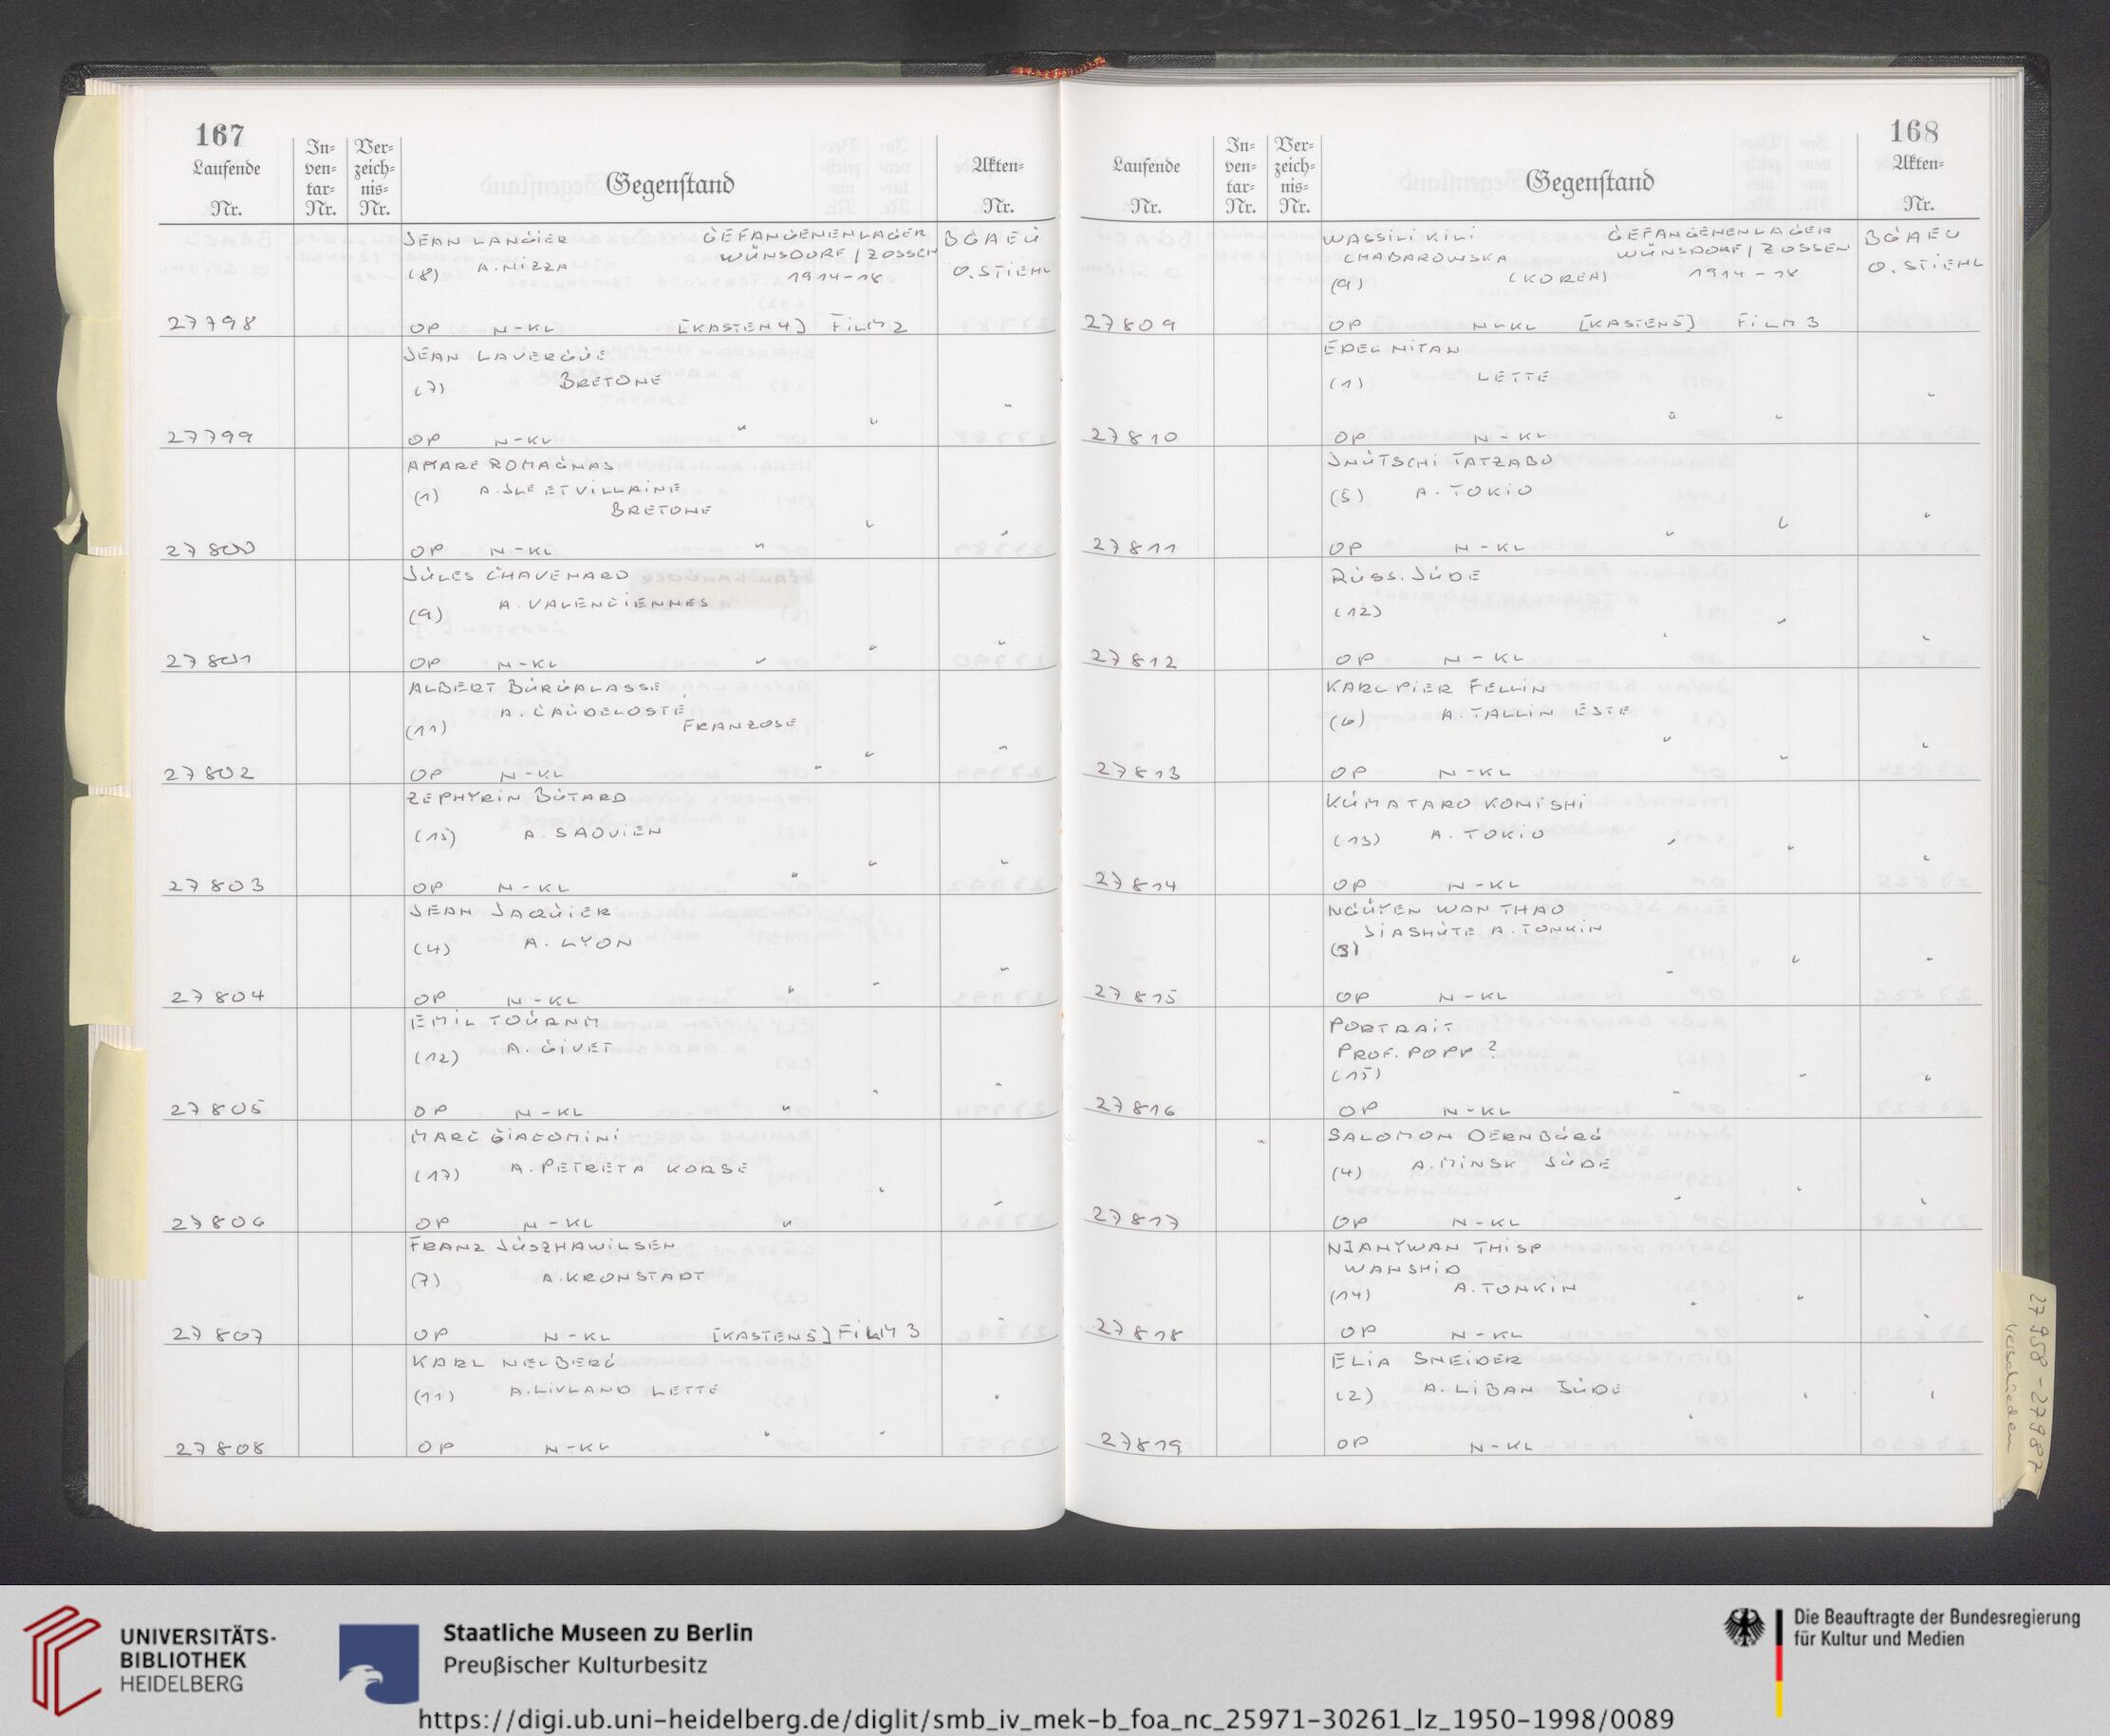 167
Laufende Nr.
In-ven-tar-Nr.
Ver-zeich-nis-Nr.
Gegenstand
Akten-Nr.
JEAN LANGIER GEFANGENENLAGER BGAEU
WÜNSDORF / ZOSSEN
(8) A. NIZZA 1914-18 O. STIEHL
27798 OP N-KL [KASTEN 4] FILM 2
JEAN LAVERGÜE
(7) BRETONE
27799 OP N-KL " " "
AMARE ROMAGNAS
(1) A. JLE ET VILLAINE
BRETONE
27800 OP N-KL " " "
JULES CHAVENARD
(9) A. VALENCIENNES
27801 OP N-KL " " "
ALBERT BURGALASSE
(11) A. CAUDELOSTE, FRANZOSE
27802 OP N-KL " " "
ZEPHYRIN BUTARD
(15) A. SAOVIEN
27803 OP N-KL " " "
JEAN JAQUIER
(4) A. LYON
27804 OP N-KL " " "
EMIL TOURNM
(12) A. GIVET
27805 OP N-KL " " "
MARC GIACOMINI
(17) A. PETRETA KORSE
27806 OP N-KL " " "
FRANZ JUSZHAWILSEN
(7) A. KRONSTADT
27807 OP N-KL [KASTEN 5] FILM 3 "
KARL NELBERG
(11) A. LIVLAND LETTE
27808 OP N-KL " " "
168
Laufende Nr.
In-ven-tar-Nr.
Ver-zeich-nis-Nr.
Gegenstand
Akten-Nr.
WASSILI KILI GEFANGENENLAGER BGAEU
CHABAROWSKA WÜNSDORF / ZOSSEN
(9) (KOREA) 1914-18 O. STIEHL
27809 OP N-KL [KASTEN 5] FILM 3
EDEL NITAN
(1) LETTE
27810 OP N-KL " " "
JNUTSCHI TATZABO
(5) A. TOKIO
27811 OP N-KL " " "
RUSS. JUDE
(12)
27812 OP N-KL " " "
KARL PIER FELLIN
(6) A. TALLIN ESTE
27813 OP N-KL " " "
KUMATARO KONISHI
(13) A. TOKIO
27814 OP N-KL " " "
NGUYEN WAN THAO
JIASHUTE A. TONKIN
(3)
27815 OP N-KL " " "
PORTRAIT
PROF. POPP ?
(15)
27816 OP N-KL " " "
SALOMON DERNBURG
(4) A. MINSK JUDE
27817 OP N-KL " " "
NJANYWAN THISP
WANSHID
(14) A. TONKIN
27818 OP N-KL " " "
ELIA SNEIDER
(2) A. LIBAN JUDE
27819 OP N-KL " " "
27958 - 27987
verschieden
UNIVERSITÄTS-
BIBLIOTHEK
HEIDELBERG
Staatliche Museen zu Berlin
Preußischer Kulturbesitz
Die Beauftragte der Bundesregierung
für Kultur und Medien
https://digi.ub.uni-heidelberg.de/diglit/smb_iv_mek-b_foa_nc_25971-30261_lz_1950-1998/0089